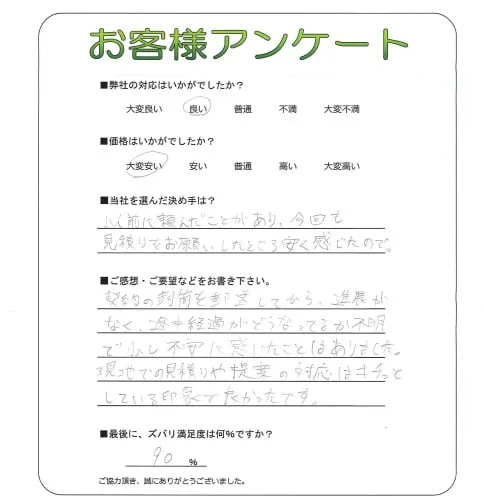 お客様アンケート
■弊社の対応はいかがでしたか?
大変良い 良い 普通 不満 大変不満
■価格はいかがでしたか?
大変安い 安い 普通 高い 大変高い
■当社を選んだ決め手は?
以前に頼んだことがあり、今回も
見積りをお願いしたところ安く感じたので。
■ご感想・ご要望などをお書き下さい。
契約の封筒を郵送してから、進展が
なく、途中経過がどうなってるか不明
で少し不安に感じたことはありました。
現地での見積りや提案の対応はキチっと
している印象で良かったです。
■最後に、ズバリ満足度は何%ですか?
90 %
ご協力頂き、誠にありがとうございました。